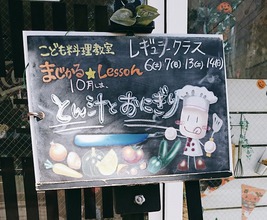 こども料理教室
まじかる★Lesson
10月は、
レギュラークラス
6(土) 7(日) 13(土) 14(日)
とん汁とおにぎり